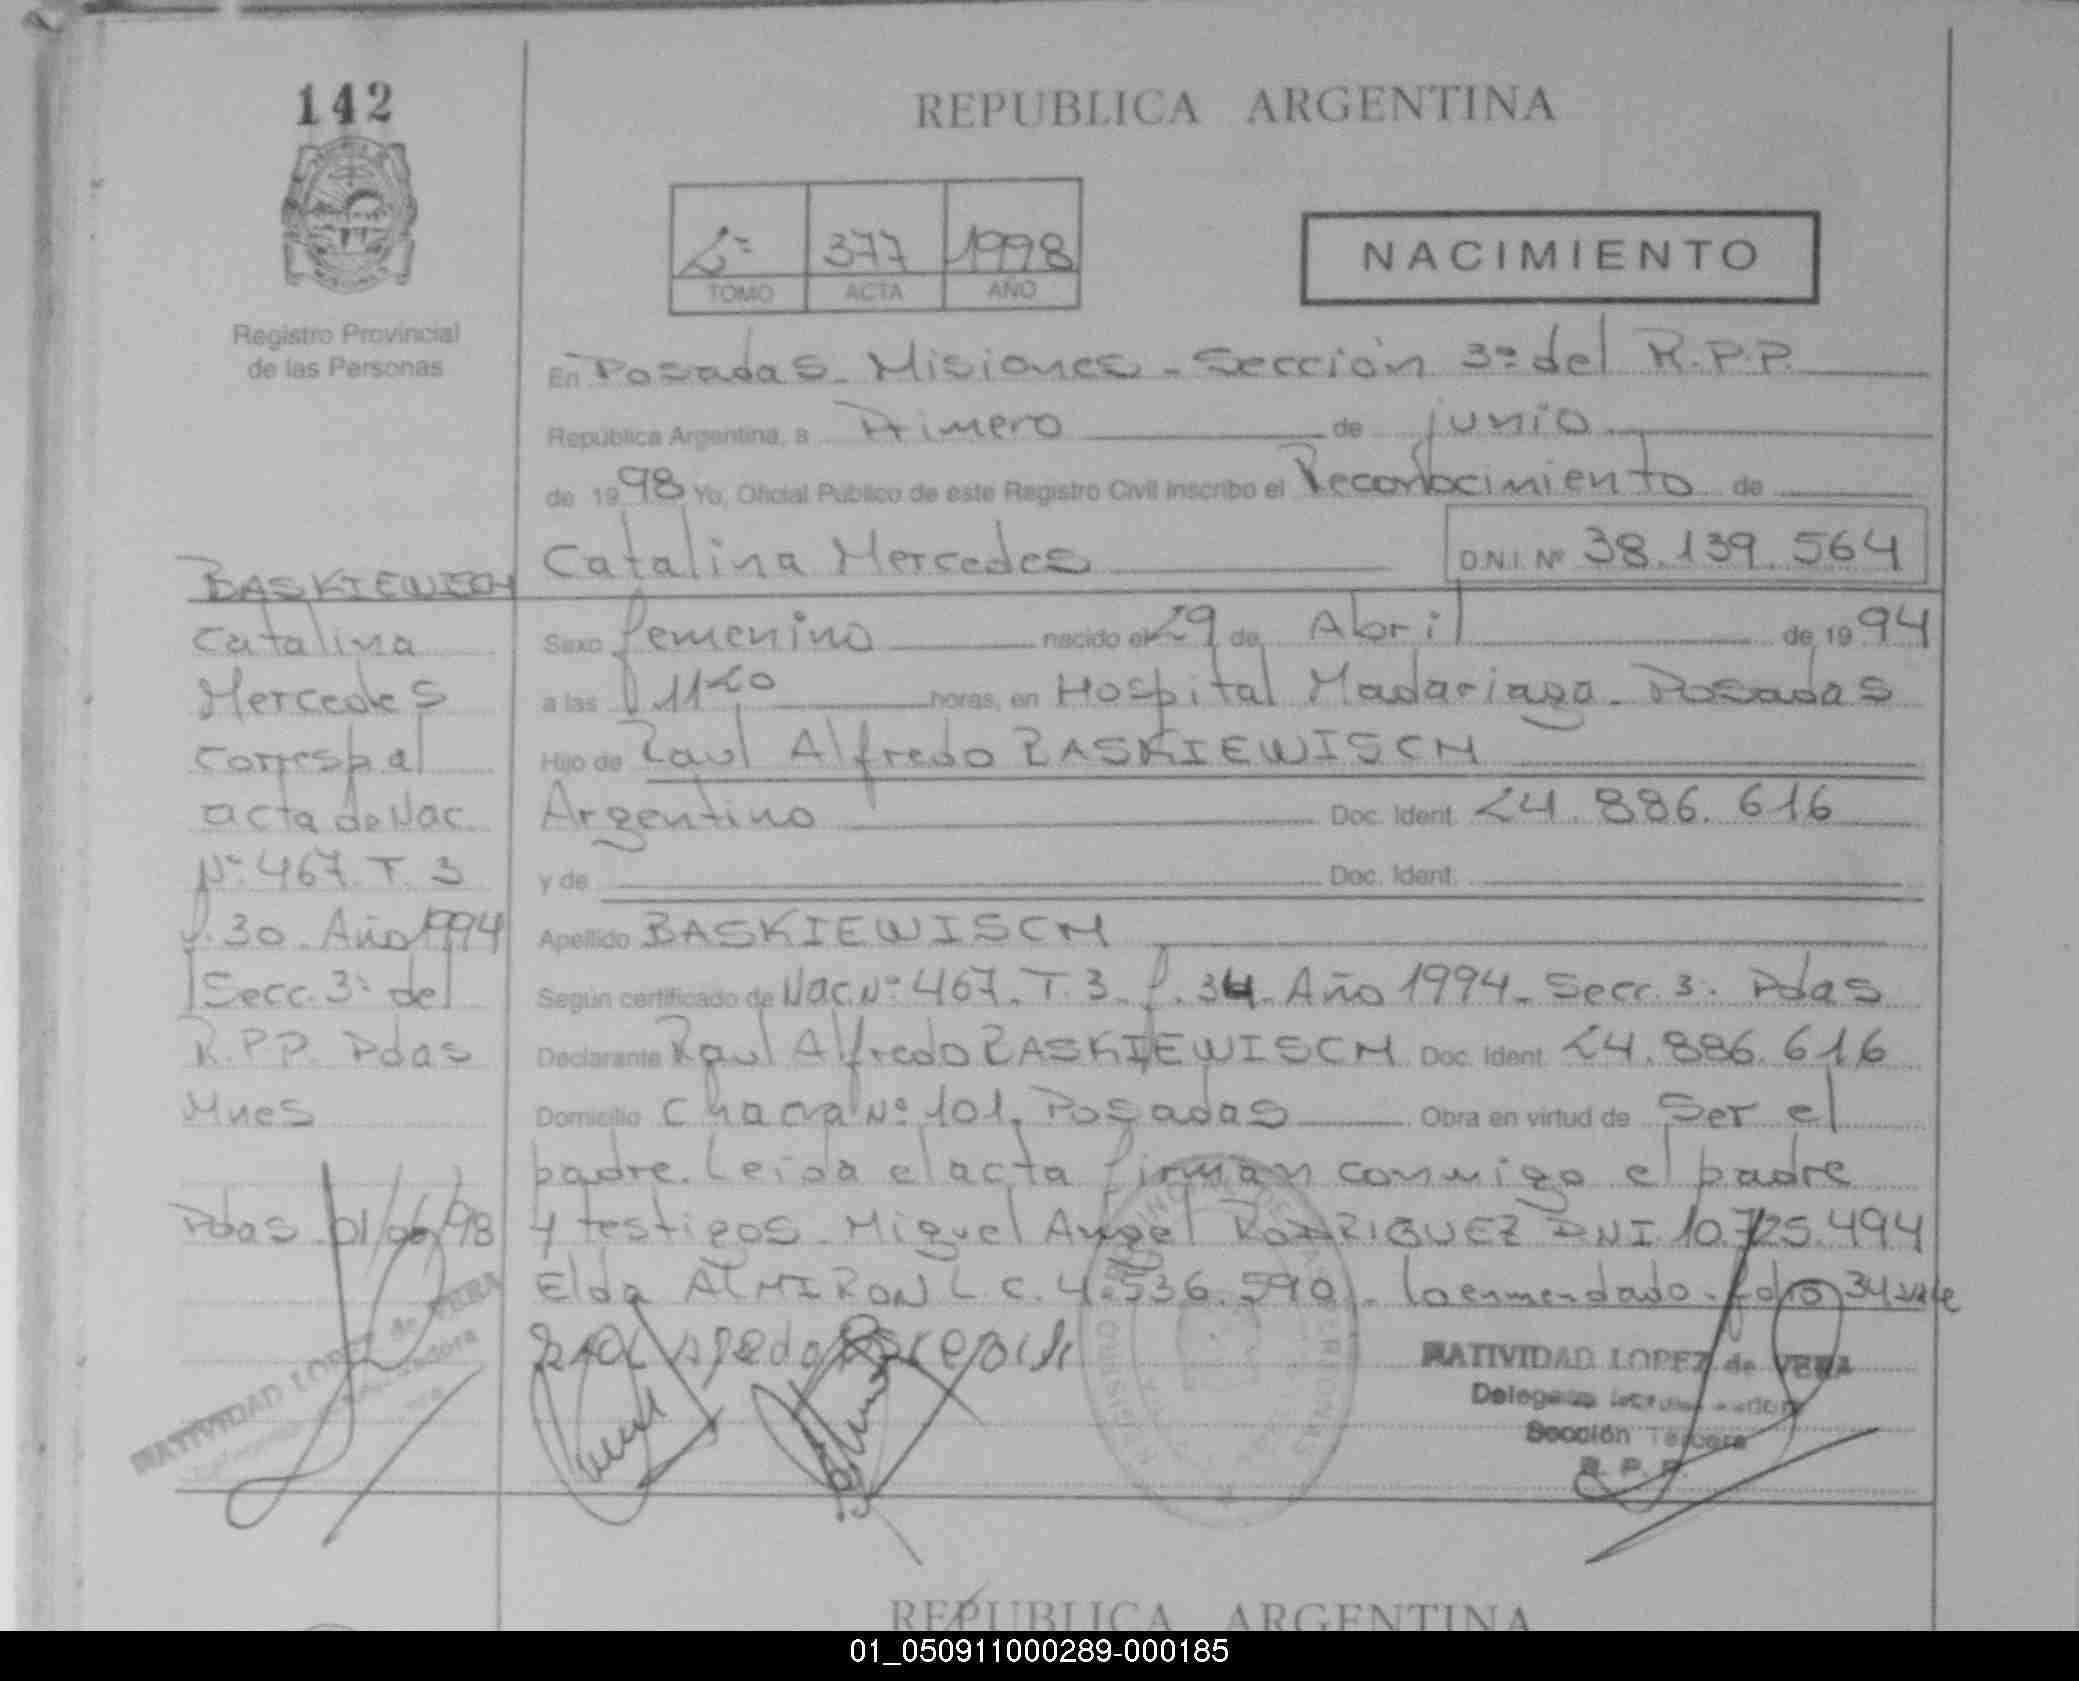 142
REPUBLICA ARGENTINA
2º 377 1998
TOMO ACTA AÑO
NACIMIENTO
Registro Provincial
de las Personas
En Posadas - Misiones - Sección 3º del R.P.P.
República Argentina, a Primero de junio
de 1998 Yo, Oficial Público de este Registro Civil inscribo el Reconocimiento de
Catalina Mercedes D.N.I. Nº 38.139.564
Sexo femenino nacido el 29 de Abril de 1994
a las 11 20 horas, en Hospital Madariaga - Posadas
Hijo de Raul Alfredo BASKIEWISCH
Argentino Doc. Ident. 24.886.616
y de Doc. Ident.
Apellido BASKIEWISCH
Según certificado de Nac. Nº 467. T. 3. f. 34. Año 1994. Secc. 3. Pdas
Declarante Raul Alfredo BASKIEWISCH Doc. Ident. 24.886.616
Domicilio Chacra Nº 101, Posadas Obra en virtud de Ser el
padre. Leida el acta firman conmigo el padre
y testigos. Miguel Angel RODRIGUEZ DNI. 10.725.494
Elda ALMIRON L.C. 4.536.590. lo enmendado. folio 34 vale
BASKIEWISCH
Catalina
Mercedes
corresp al
acta de Nac.
Nº 467. T. 3
f. 30. Año 1994
Secc. 3º del
R.P.P. Pdas
Mnes
Pdas 01/06/98
NATIVIDAD LOPEZ de VERA
NATIVIDAD LOPEZ de VERA
Sección Tercera
R. P. P.
REPUBLICA ARGENTINA
01_050911000289-000185